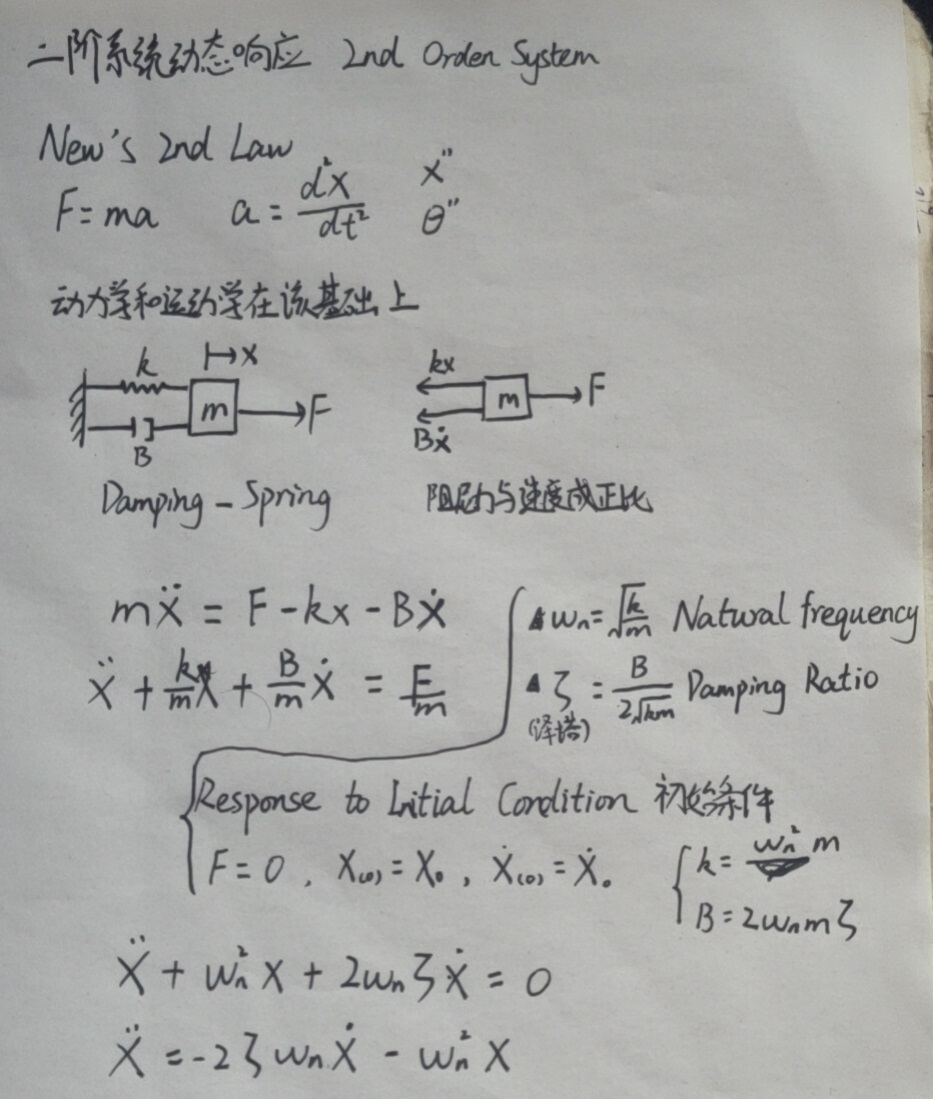 二阶系统动态响应 2nd Orden System
New's 2nd Law
F=ma a=d²x/dt² x"
θ"
动力学和运动学在该基础上
k x
m F
B
kx
m F
Bẋ
Damping-Spring 阻尼力与速度成正比
mẍ = F-kx-Bẋ
ẍ + k/m x + B/m ẋ = F/m
▲ wn=√(k/m) Natural frequency
▲ ζ = B/(2√(km)) Damping Ratio
(泽塔)
Response to Initial Condition 初始条件
F=0, X(0)=X₀, Ẋ(0)=Ẋ₀
k=wn²m
B=2wnmζ
Ẍ + wn²X + 2wnζẊ = 0
Ẍ =-2ζwnẊ - wn²X